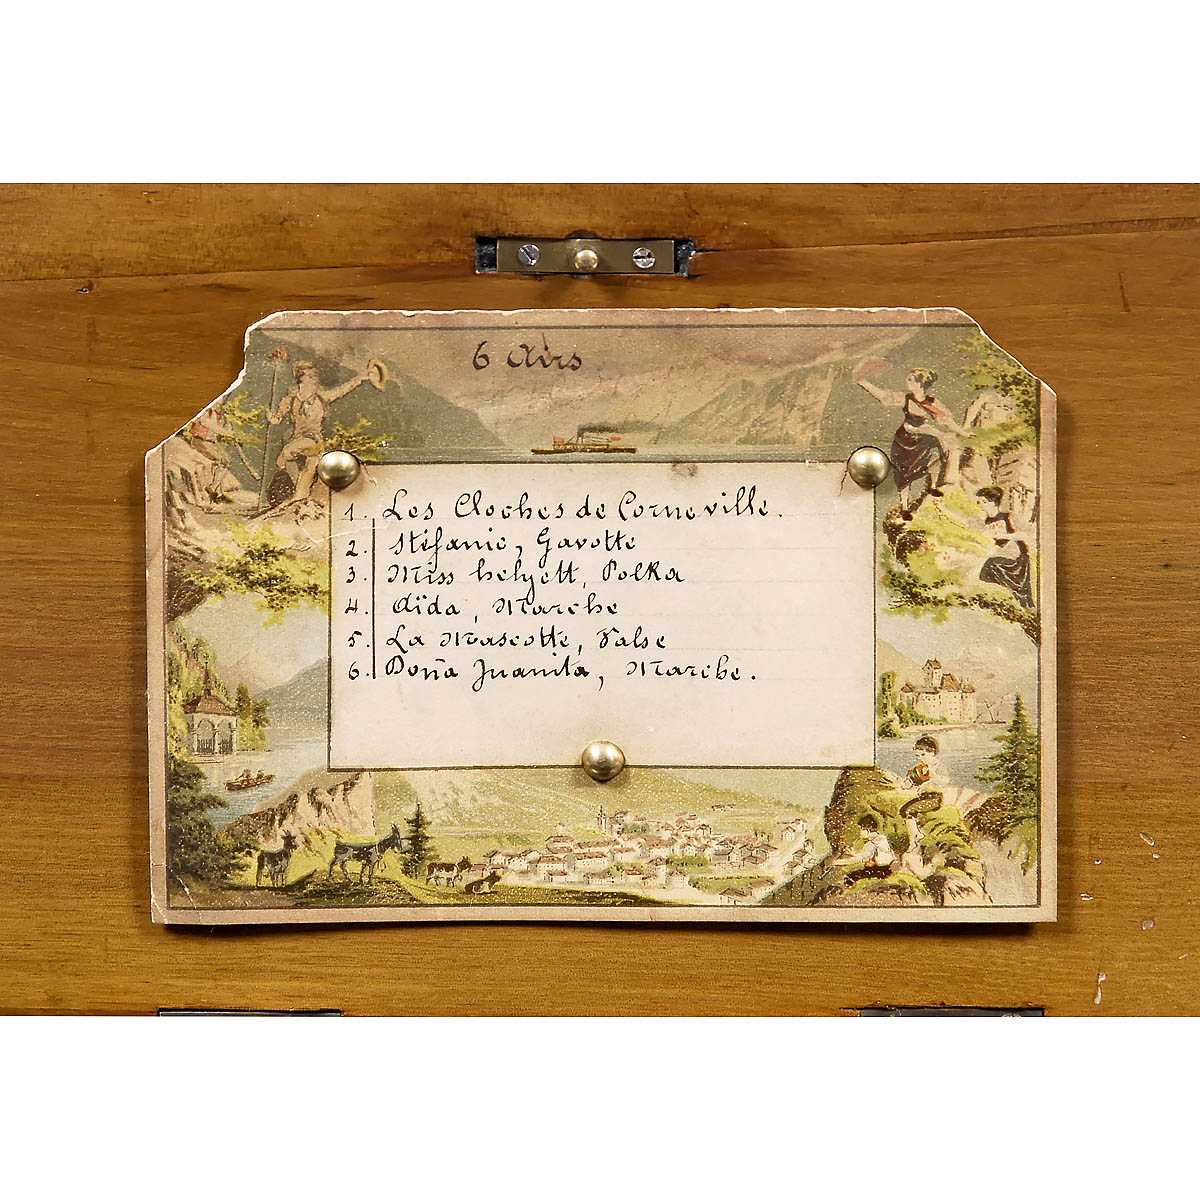 6 Airs
1. Les Cloches de Corneville.
2. Stéfanie, Gavotte
3. Miss helyett, Polka
4. Aïda, Marche
5. La Mascotte, Valse
6. Doña Juanita, Marche.